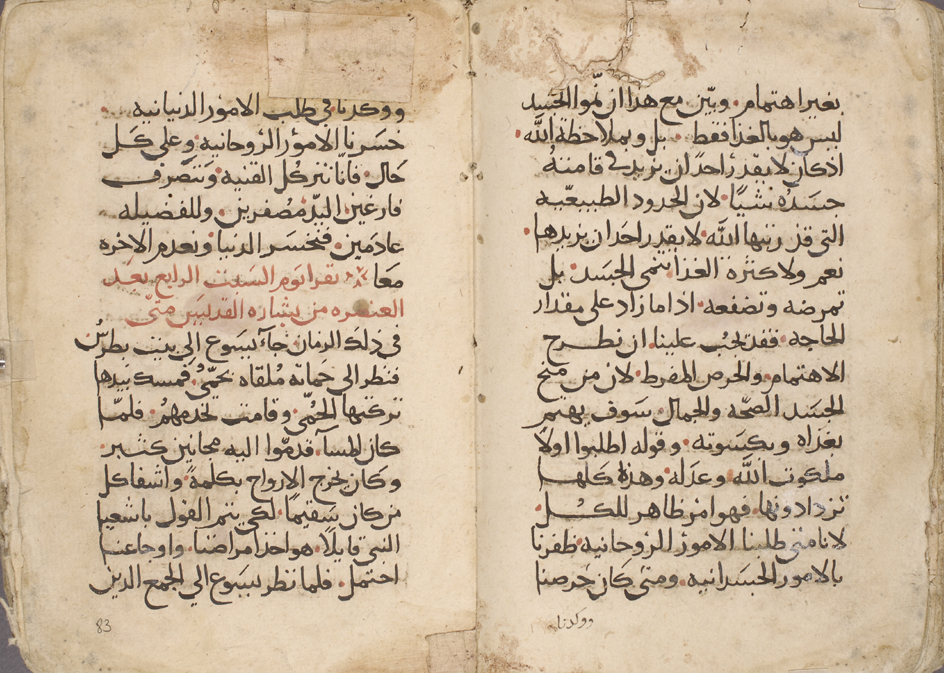 بغير اهتمام. وبيّن مع هذا ان نموا الجسد
ليس هو بالغذا فقط. بل وبملاحظة الله
اذ كان لا يقدر احد ان يزيد في قامة
جسده شيًا. لان الحدود الطبيعيه
التي قد رتبها الله. لا يقدر احد ان يزيدها
نعم ولا كثرة الغذا ينمي الجسد. بل
تمرضه وتضعفه. اذا ما زاد على مقدار
الحاجه. فقد يجب علينا ان نطرح
الاهتمام. والحرص المفرط. لان من منح
الجسد الصحه والجمال سوف يهتم
بغداه وبكسوته. وقوله اطلبوا اولا
ملكوت الله وعدله وهذه كلها
تزدادونها. فهو امر ظاهر للكل.
لانا متى طلبنا الامور الروحانيه. ظفرنا
بالامور الجسدانيه. ومتى كان حرصنا
ووكدنا
ووكدنا في طلب الامور الدنيانيه
خسرنا الامور الروحانيه. وعلى كل
حال. فانا نترك كل القنيه وننصرف
فارغين اليد مصفرين. وللفضيله
عادمين. فنخسر الدنيا ونعدم الاخره
معا يقرا يوم السبت الرابع بعد
العنصره من بشاره القديس متى
في ذلك الزمان. جآ يسوع الي بيت بطرس
فنظر الى حماته ملقاه بحمّى. فمسك بيدها
تركتها الحُمّى. وقامت تخدمهم. فلما
كان المسآ. قدموا اليه مجانين كثير.
وكان يخرج الارواح بكلمة. واشفا كل
من كان سقيمًا. لكي يتم القول باشعيا
النبي قايلًا. هو اخذ امراضنا. واوجاعنا
احتمل. فلما نظر يسوع الي الجمع الذين
83